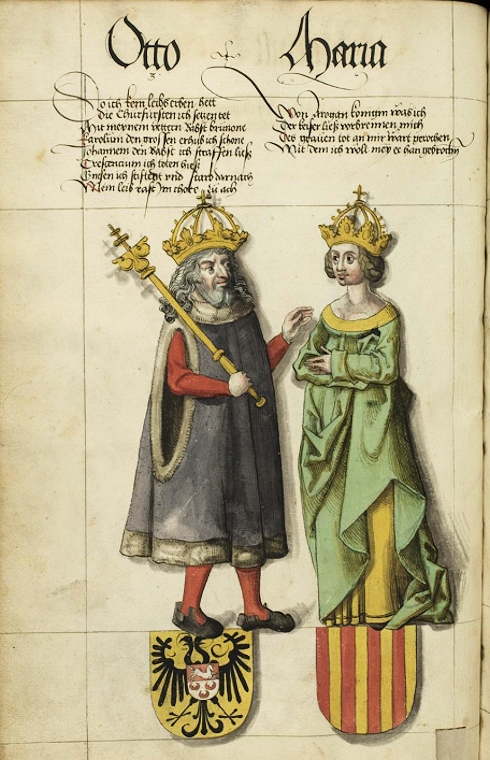 Otto Maria
3
So ich kein leibs erben hett
Die Churfürsten ich setzen tet
Mit meynem vettern Babst brunone
Carolum den grossen erhub ich schone
Johannem den Babst ich straffen ließ
Crescencium ich töten hieß
ich stifftet und starb darnach
Mein leib rast im thore zu ach
Von Arrogon konigin was ich
Der keiser ließ verbrennen mich
Des graven tot an mir wart gerochen
Mit dem ich wolt mey ee han gebrochn